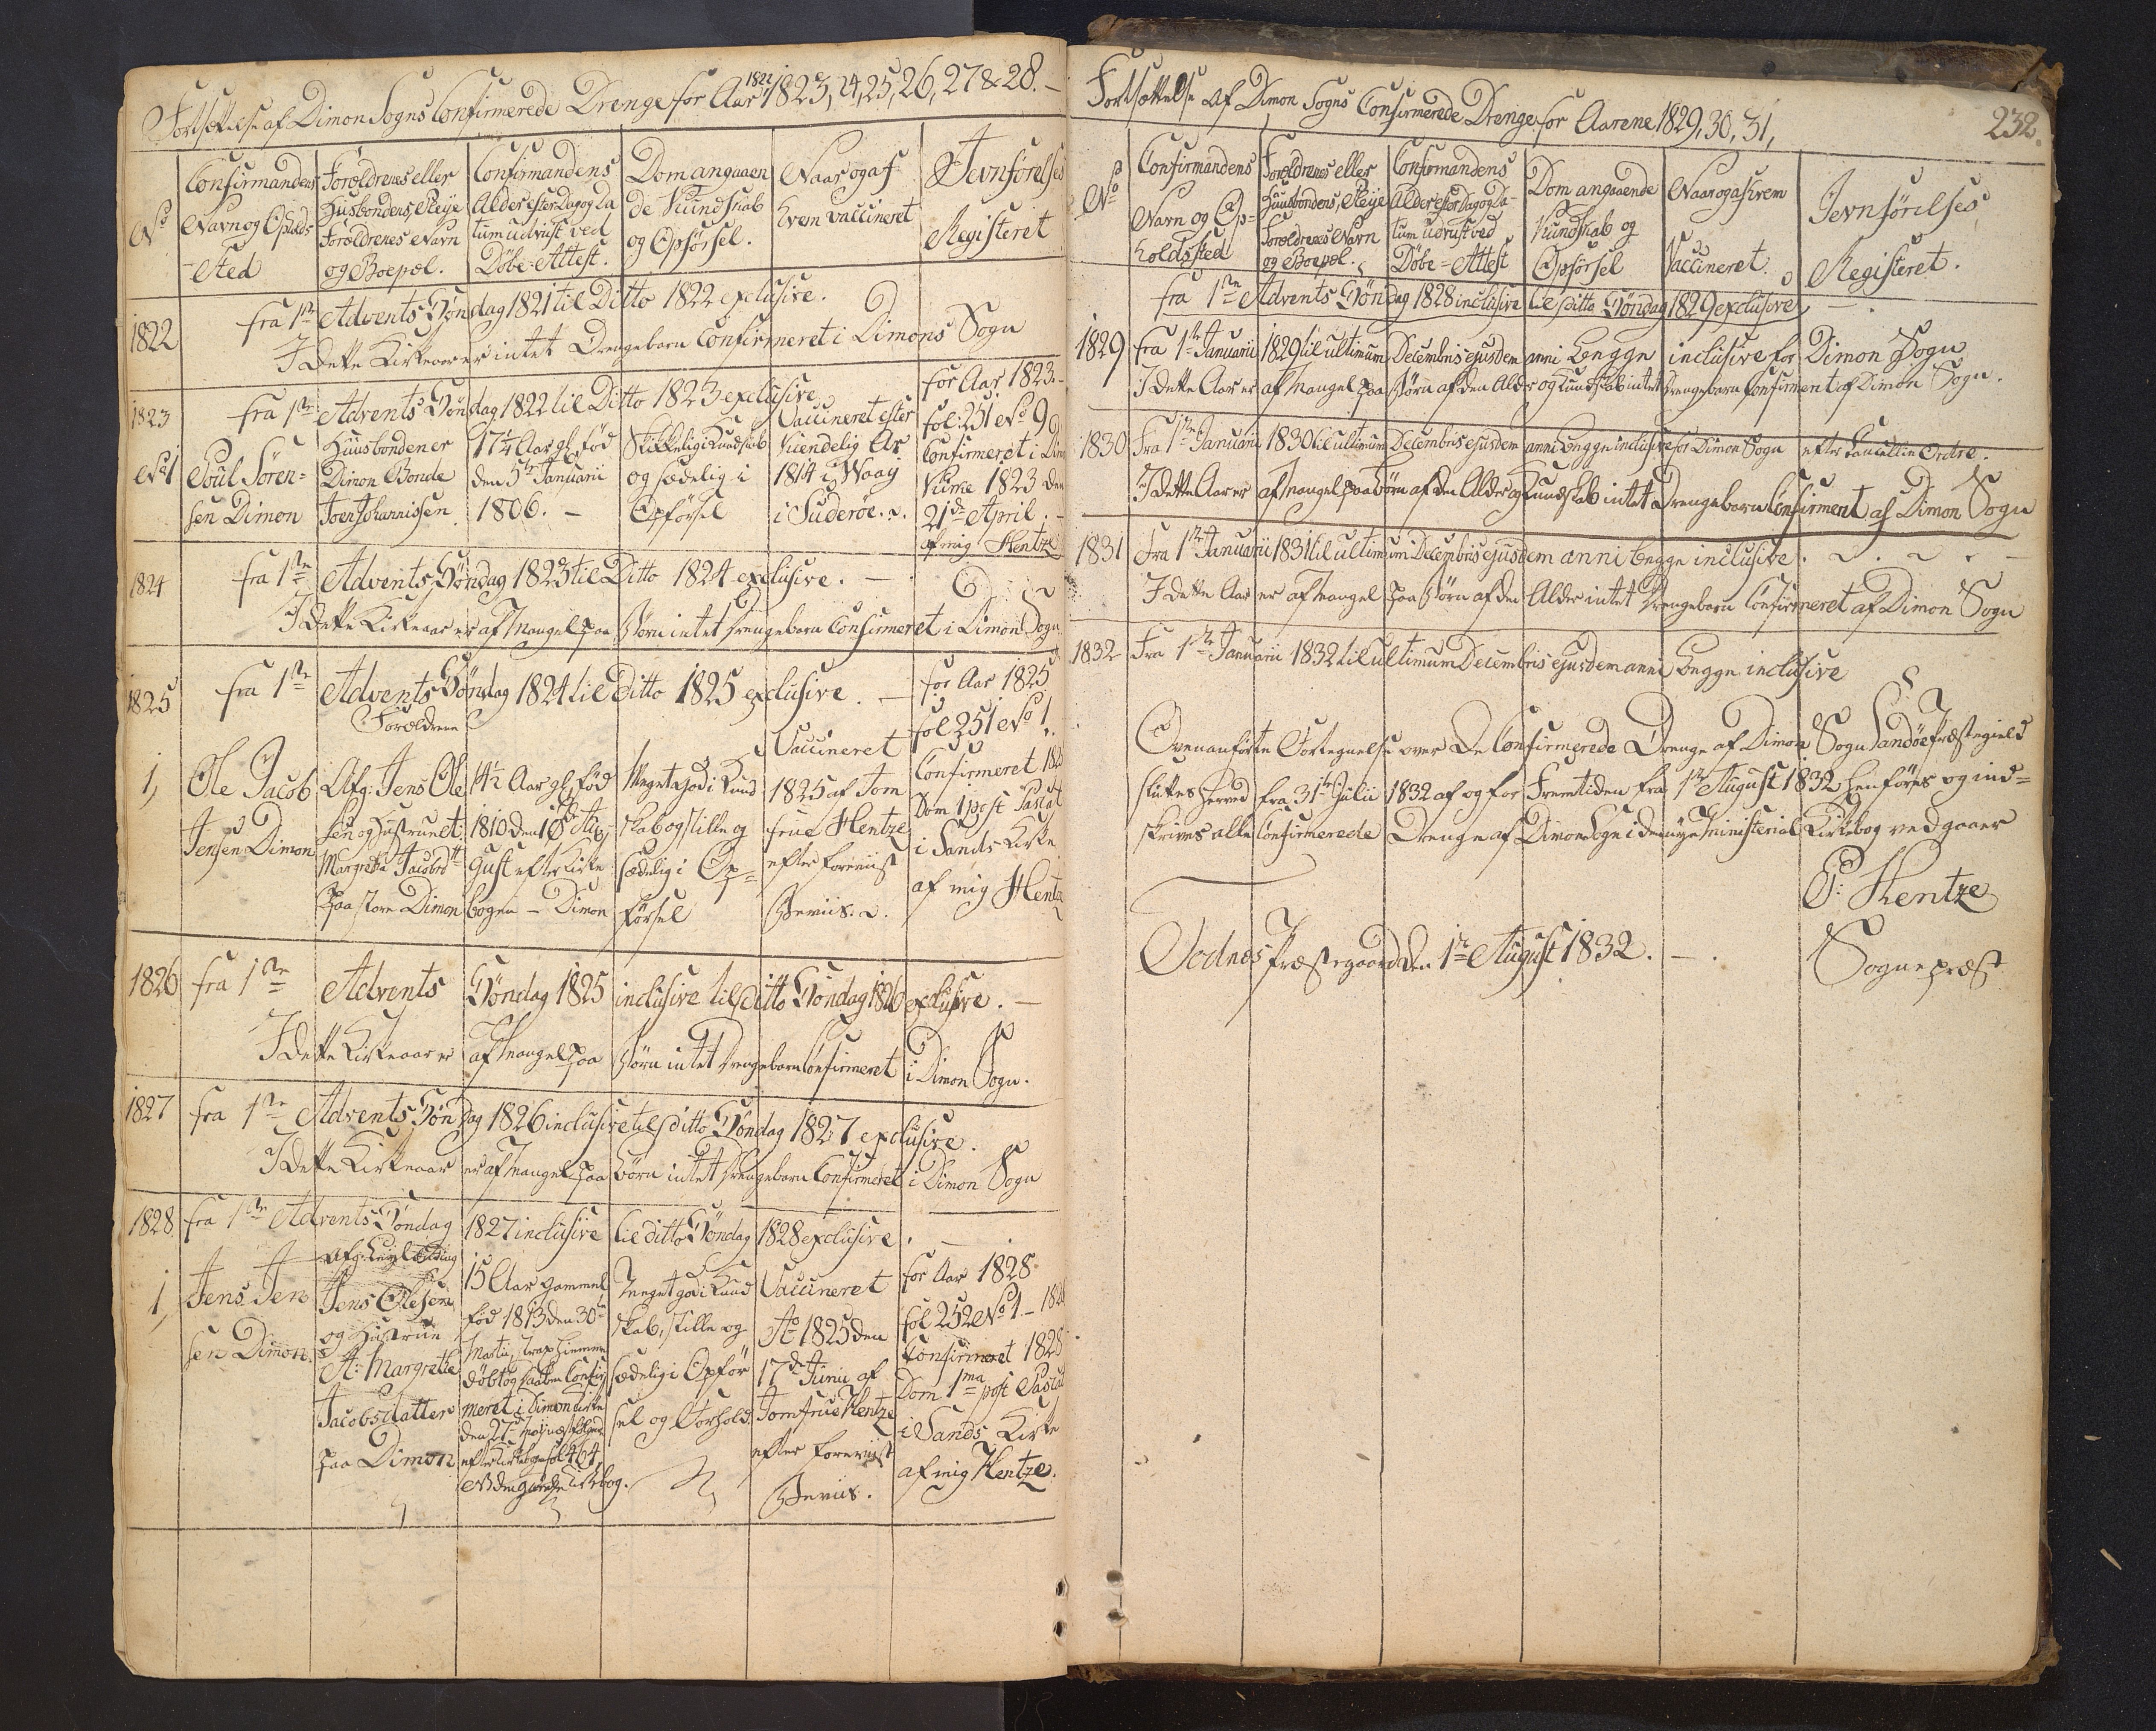 Fortsættelse af Dimon Sogns Confirmerede Drenge for Aar 1822, 1823, 24, 25, 26, 27 & 28.
No
Confirmandens
Navn og Opholds
Sted
Forældrenes eller
Huusbondens, Pleije
Forældrenes Navn
og Boepæl.
Confirmandens
Alder efter Dag og Da
tum udviist ved
Döbe-Attest.
Dom angaaen
de Kundskab
og Opförsel.
Naar og af
hvem vaccineret
Jevnförelses
Registeret
1822
fra 1ste Advents Söndag 1821 til Ditto 1822 exclusive.
I dette Kirkeaar er intet Drengebarn Confirmeret i Dimons Sogn
1823
fra 1ste Advents Söndag 1822 til Ditto 1823 exclusive
No 1
Poul Sören=
sen Dimon
Huusbonden er
Dimon Bonde
Joen Johannissen
17¼ Aar gl. föd
den 5te Januarii
1806. –
Skikkelig i Kundskab
og sædelig i
Opförsel
Vaccineret efter
Sigende Ao
1814 i Waag
i Suderöe.
for Aar 1823
fol: 251 No 9
Confirmeret i Dim
Kirke 1823 den
21de April.
af mig Hentze
1824
fra 1ste Advents Söndag 1823 til Ditto 1824 exclusive. –
I dette Kirkeaar er af Mangel paa Börn intet Drengebarn Confirmeret i Dimon Sogn
1825
fra 1ste Advents Söndag 1824 til Ditto 1825 exclusive. –
1,
Ole Jacob
Jensen Dimon
Forældrene
Afg: Jens Ole
sen og Hustrue
Margretha Jacobsdtt
paa store Dimon
14½ Aar gl. föd
1810 den 10de Au
gust efter Kirke
bogen – Dimon
Meget god i Kund
skab og stille og
sædelig i Op=
försel
Vaccineret
1825 af Jom
frue Hentze
efter foreviist
Beviis.
for Aar 1825
fol 251 No 1.
Confirmeret 182
Dom 1 post Pascat
i Sands Kirke
af mig Hentz
1826
fra 1ste Advents Söndag 1825 inclusive til ditto Söndag 1826 exclusive. –
I dette Kirkeaar er af Mangel paa Börn intet Drengebarn Confirmeret i Dimon Sogn.
1827
fra 1ste Advents Söndag 1826 inclusive til ditto Söndag 1827 exclusive.
I dette Kirkeaar er af Mangel paa Börn intet Drengebarn Confirmeret i Dimon Sogn
1828
fra 1ste Advents Söndag 1827 inclusive til ditto Söndag 1828 exclusive.
1,
Jens Jen
sen Dimon.
Afg:
Jens Olesen
og Hustrue
A: Margrethe
Jacobsdatter
paa Dimon
15 Aar gammel
föd 1813 den 30te
Martii, strax hiemme
döbt og saaden Confir
meret i Dimon Kirke
den 27
efter Kirkebogens fol 464,
Kirkebog.
Meget god i Kund
skab, stille og
sædelig i Opför
sel og Forhold.
Vaccineret
Ao 1825 den
17de Junii af
Jomfrue Hentze
efter foreviist
Beviis.
for Aar 1828
fol 252 No 1 – 182
Confirmeret 1828
Dom 1ma post Pascat
i Sands Kirke
af mig Hentze.
232.
Fortsættelse af Dimon Sogns Confirmerede Drenge for Aarene 1829, 30, 31,
No
Confirmandens
Navn og Op=
holdssted
Forældrenes eller
Huusbondens, Pleije
Forældrenes Navn
og Boepæl.
Confirmandens
Alder efter Dag og Da-
tum udviist ved
Döbe=Attest
Dom angaaende
Kundskab og
Opförsel
Naar og af hvem
Vaccineret.
Jevnförelses
Registeret.
fra 1ste Advents Söndag 1828 inclusive til ditto Söndag 1829 exclusive
1829
fra 1ste Januarii 1829 til ultimum Decembris ejusdem anni begge inclusive for Dimon Sogn
I dette Aar er af Mangel paa Börn af den Alder og Kundskab intet Drengebarn Confirmeret af Dimon Sogn.
1830
Fra 1ste Januarii 1830 til ultimum Decembris ejusdem anni begge inclusive for Dimon Sogn efter Cancellie Ordre.
I dette Aar er af Mangel paa Börn af den Alder og Kundskab intet Drengebarn Confirmeret af Dimon Sogn
1831
Fra 1ste Januarii 1831 til ultimum Decembris ejusdem anni begge inclusive.
I dette Aar er af Mangel paa Börn af den Alder intet Drengebarn Confirmeret af Dimon Sogn
1832
Fra 1ste Januarii 1832 til ultimum Decembris ejusdem anni begge inclusive
Ovenanförte Fortegnelse over De Confirmerede Drenge af Dimon Sogn Sandöe Præstegield
sluttes herved fra 31te Julii 1832 af og for Fremtiden fra 1ste August 1832 henföres og ind=
skrives alle Confirmerede Drenge af Dimon Sogn i den nye Ministerial Kirkebog ved gaaer
P: Hentze
Todnæs Præstegaard den 1ste August 1832. –
Sognepræst